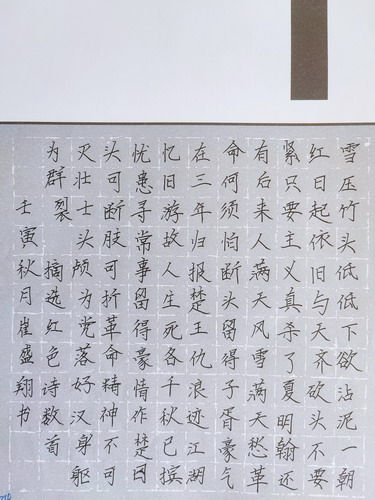 雪压竹头低低下欲沾泥一朝
红日起依旧与天齐砍头不要
紧只要主义真杀了夏明翰还
有后来人满天风雪满天愁革
命何须怕断头留得子胥豪气
在三年归报楚王仇浪迹江湖
忆旧游故人生死各千秋已摈
忧患寻常事留得豪情作楚囚
头可断肢可折革命精神不可
灭壮士头颅为党落好汉身躯
为群裂 摘选红色诗数首
壬寅秋月崔盛翔书